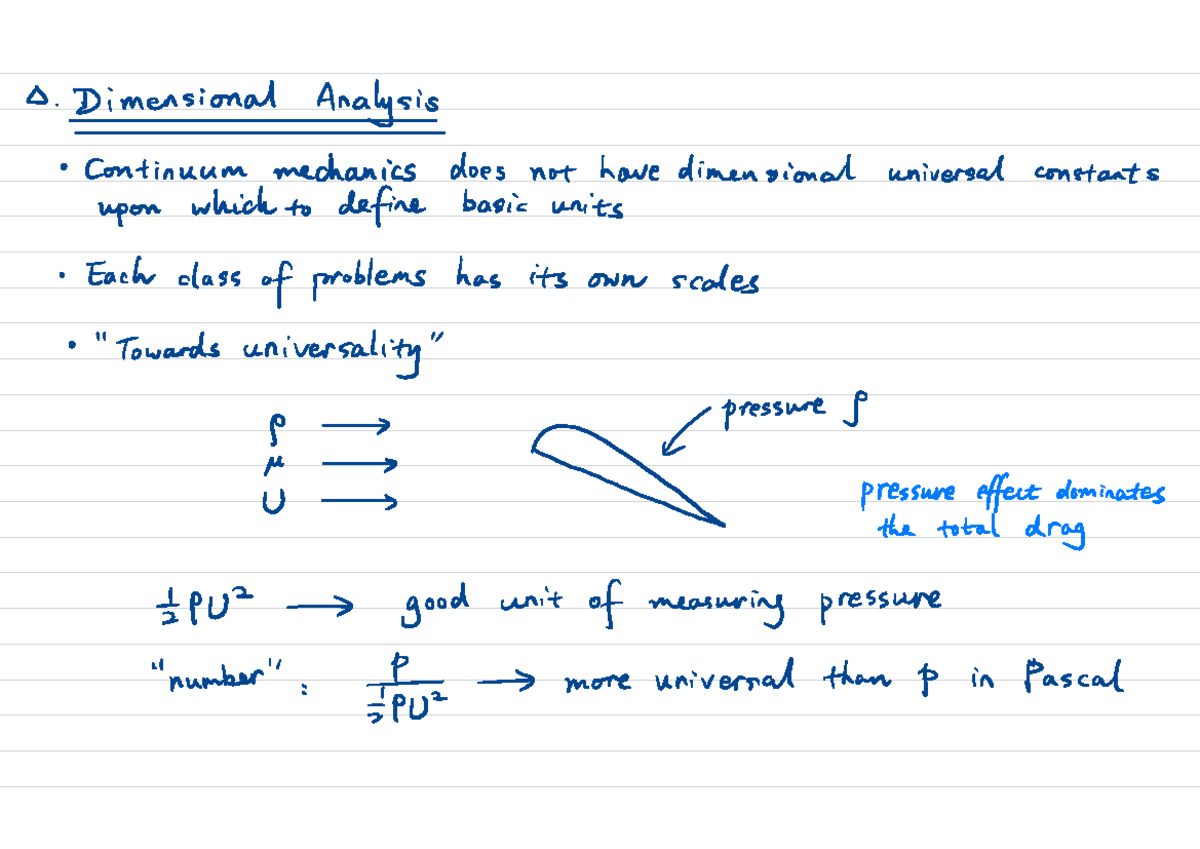 Δ. Dimensional Analysis
• Continuum mechanics does not have dimensional universal constants
upon which to define basic units
• Each class of problems has its own scales
• "Towards universality"
pressure p
ρ →
μ →
U →
pressure effect dominates
the total drag
½ρU² → good unit of measuring pressure
"number": p / ½ρU² → more universal than p in Pascal